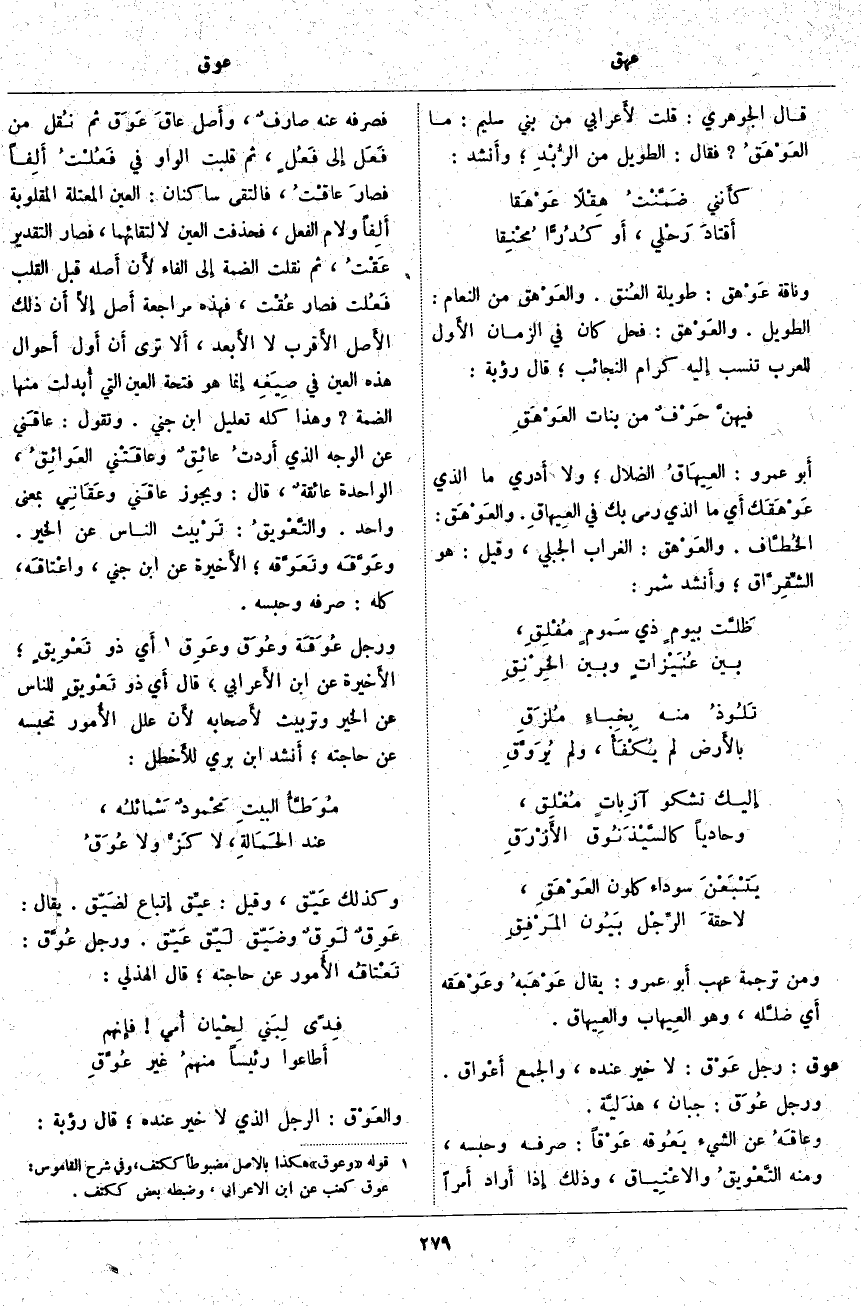 عهق
عوق
قال الجوهري : قلت لأعرابي من بني سليم : ما
العَوْهَقُ ? فقال : الطويل من الرُّبْدِ ؛ وأنشد :
كأنني ضَمَّنْتُ هِقْلًا عَوْهَقا
أقتادَ رَحْلي ، أو كُدُرًّا مُحْنِقا
وناقة عَوْهق : طويلة العُنق . والعَوْهق من النعام :
الطويل . والعَوْهق : فحل كان في الزمـان الأَول
للعرب تنسب إليه كرام النجائب ؛ قال رؤبة :
فيهنّ حَرْفٌ من بنات العَوْهَقِ
أبو عمرو : العيهَاقُ الضلال ؛ ولا أدري ما الذي
عَوْهَقَك أي ما الذي رمى بك في العيهاقِ . والعَوْهَق :
الخُطَّاف . والعَوْهق : الغراب الجبلي ، وقيل : هو
الشَّقِرَّاق ؛ وأنشد شمر :
ظَلَّت بيومٍ ذي سَمومٍ مُفْلِقِ ،
بين عُنَيْزاتٍ وبين الخِرْنِقِ
تَلُوذُ منه بِخِباءٍ مُلزَقِ
بالأرض لم يُكْفَأْ ، ولم يُرَوَّقِ
إليك تشكو آزِباتٍ مُغْلَقِ ،
وحادياً كالسَّيْذَنُوق الأَزْرَقِ
يَتْبَعْنَ سوداء كلون العَوْهَقِ ،
لاحقةَ الرِّجْل بَيُون المَرْفِقِ
ومن ترجمة عهب أبو عمرو : يقال عَوْهَبهُ وعَوْهَقه
أي ضلَّله ، وهو العيهاب والعيهاق .
عوق : رجل عَوْق : لا خير عنده ، والجمع أعْواق .
ورجل عُوَق : جبان ، هذليَّة .
وعاقَهُ عن الشيء يَعُوقه عَوْقاً : صرفه وحبسه ،
ومنه التَّعْويقُ والاعْتِيـاق ، وذلك إذا أراد أمراً
فصرفه عنه صارفٌ ، وأصل عاقَ عَوَق ثم نُقل من
فَعَل إلى فَعُل ، ثم قلبت الواو في فَعُلْتُ أَلِفـاً
فصارَ عاقْتُ ، فالتقى ساكنان : العين المعتلة المقلوبة
ألِفاً ولام الفعل ، فحذفت العين لالتقائهما ، فصار التقدير
عَقْتُ ، ثم نقلت الضمة إلى الفاء لأن أصله قبل القلب
فَعُلت فصار عُقْت ، فهذه مراجعة أصل إلاَّ أن ذلك
الأصل الأقرب لا الأبعد ، ألا ترى أن أول أحوال
هذه العين في صيَغِه إنما هو فتحة العين التي أُبدلت منها
الضمة ? وهذا كله تعليل ابن جني . وتقول : عاقَني
عن الوجه الذي أردتُ عائِقٌ وعاقَتْني العَوائِقُ ،
الواحدة عائقةٌ ، قال : ويجوز عاقَني وعَقَانِي بمعنى
واحد . والتَّعْويقُ : تَرْبيث النـاس عن الخير .
وعَوَّقَه وتَعَوَّقه ؛ الأخيرة عن ابن جني ، واعْتاقَه ،
كله : صرفه وحبسه .
ورجل عُوَقَة وعُوَق وعَوِق ١ أي ذو تَعْويقٍ ؛
الأخيرة عن ابن الأعرابي ؛ قال أي ذو تَعْويقٍ للناس
عن الخير وتربيث لأصحابه لأن علل الأُمور تحبسه
عن حاجته ؛ أنشد ابن بري للأخطل :
مُوَطَّأُ البيتِ مَحْمودٌ شَمائلُه ،
عند الحَمَالةِ ، لا كَزٌّ ولا عُوَقُ
وكذلك عَيِّق ، وقيل : عيِّق إتباع لضَيِّق . يقال :
عَوِقٌ لَوِقٌ وضَيِّق لَيِّق عَيِّق . ورجل عُوَّق :
تَعْتاقُه الأُمور عن حاجته ؛ قال الهذلي :
فِدًى لِبَني لِحْيان أُمي ! فإنهم
أطاعوا رئيساً منهمُ غير عُوَّقِ
والعَوْق : الرجل الذي لا خير عنده ؛ قال رؤبة :
١ قوله «وعوق» هكذا بالاصل مضبوطاً ككتف ، وفي شرح القاموس :
عوق كعنب عن ابن الاعرابي ، وضبطه بعض ككتف .
٢٧٩